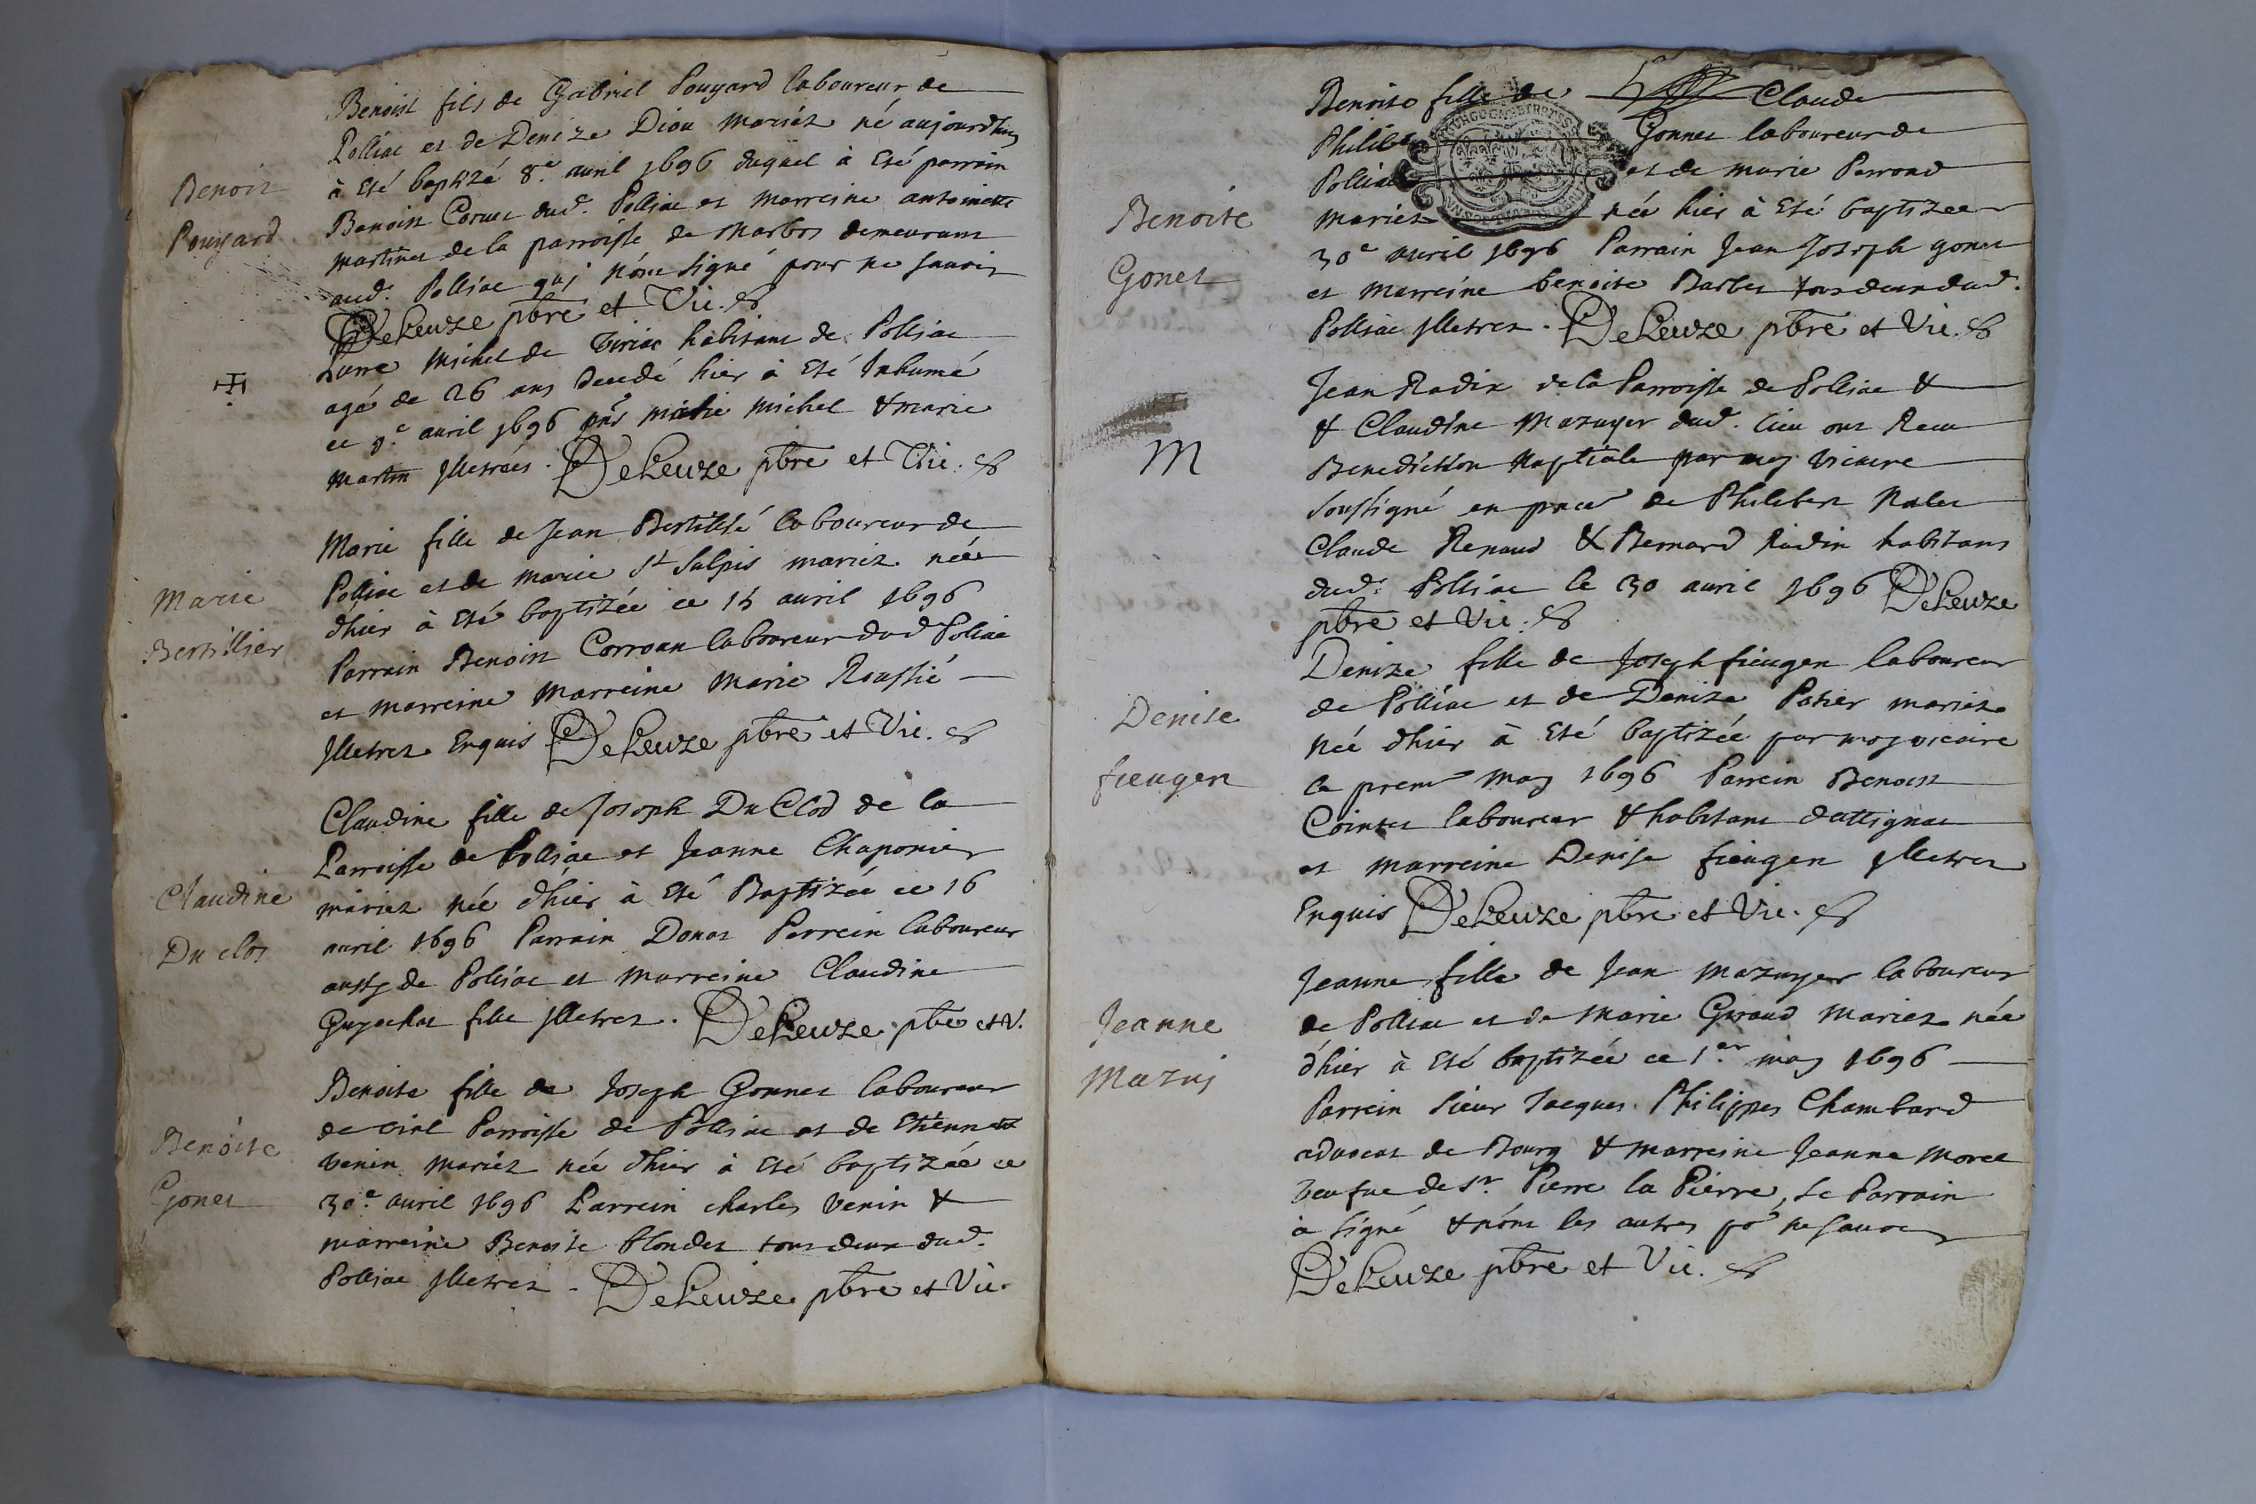 Benoist fils de Gabriel Pouyard laboureur de
Polliac et de Denize Diou mariés né aujourdhuy
à Eté baptizé 8.e avril 1696 duquel à Eté parrain
Benoist Cornet dud. Polliac et Marreine antoinette
Benoit
Pouyard
martinet de la parroisse de Marbos demeurant
aud. Polliac qui n'ont signé pour ne savoir
DeLeuze pbre et Vic.
Michel de Viriac habitant de Polliac
agé de 26 ans decedé hier à Eté Inhumé
ce 9.e avril 1696 pns michel & marie
martin Illetrées. DeLeuze pbre et Vic.
Marie fille de Jean Bertillié laboureur de
Polliac et de marie St Sulpis mariez née
d'hier à Eté baptizée ce 15 avril 1696
Marie
Bertillier
Parrein Benoist laboureur dud Poliac
et marreine marreine Marie Roussié
Illetrez Enquis DeLeuze pbre et Vic.
Claudine fille de Joseph DuClod de la
Parroisse de Polliac et Jeanne Chaponier
mariez née d'hier à Eté Baptizée ce 16
Claudine
Du clos
avril 1696 Parrain Donat Perrein laboureur
aussy de Polliac et marreine Claudine
Guyochat fille Illetrez. DeLeuze pbre et V.
Benoite fille de Joseph Gonnet laboureur
de Parroisse de Polliac et de Etiennette
Benoite
Gonet
venin mariez née d'hier à Eté baptizée ce
30.e avril 1696 Parrein charles venin &
marreine Benoite blondet tous deux dud.
Polliac Illetrez. DeLeuze pbre et Vic.
Benoite fille de Claude
Gonnet laboureur de
et de marie Perraud
Benoite
Gonet
mariez née hier à Eté baptizée
30e avril 1696 Parrain Jean Joseph gonet
et marreine benoite Barbet tous deux dud.
Polliac Illetrez. DeLeuze pbre et Vic.
Jean Radix de la Parroisse de Polliac &
& Claudine Mazuyer dud. lieu ont Receu
M
Benediction Nuptiale par moy vicaire
soussigné en pnce de Philibert
Claude Renaud & Bernard Radix habitans
dud. Polliac le 30 avril 1696 DeLeuze
pbre et Vic.
Denize fille de Joseph fieugen laboureur
de Polliac et de Denize Potier mariez
Denise
fieugen
née d'hier à Eté baptizée par moy vicaire
ce premr may 1696 Parrein Benoist
Cointet laboureur & habitant d'attignac
et marreine Denise fieugen Illetrez
Enquis DeLeuze pbre et Vic.
Jeanne fille de Jean mazuyer laboureur
de Polliac et de Marie Giraud Mariez née
Jeanne
Mazuj
d'hier à Eté baptizée ce 1.er may 1696
Parrein sieur Jacques Philippes Chambard
advocat de Bourg & marreine Jeanne Morel
veufve de sr. Pierre la Pierre, Le Parrain
à signé & non les autres po.r ne savoir
DeLeuze pbre et Vic.